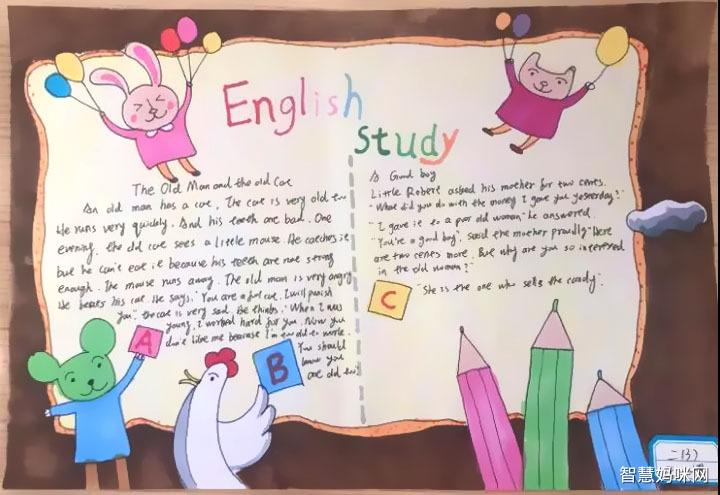 English
study
The Old Man and the old Cat
An old man has a cat. The cat is very old too
He runs very quickly. And his teeth are bad. One
evening, the old cat sees a little mouse. He catches it
but he can't eat it because his teeth are not strong
enough. The mouse runs away. The old man is very angry
He beats his cat. He says: "You are a cat. I will punish
you." the cat is very sad. He thinks: "When I was
young, I worked hard for you. Now you
don't like me because I'm old to work.
You should
know you
are old too
A Good boy
Little Robert asked his mother for two cents.
"What did you do with the money I gave you yesterday?"
"I gave it to a poor old woman," he answered.
"You're a good boy", said the mother proudly "Here
are two cents more. But why are you so interested
in the old woman?"
"She is the one who sells the candy".
A
B
C
智慧妈咪网